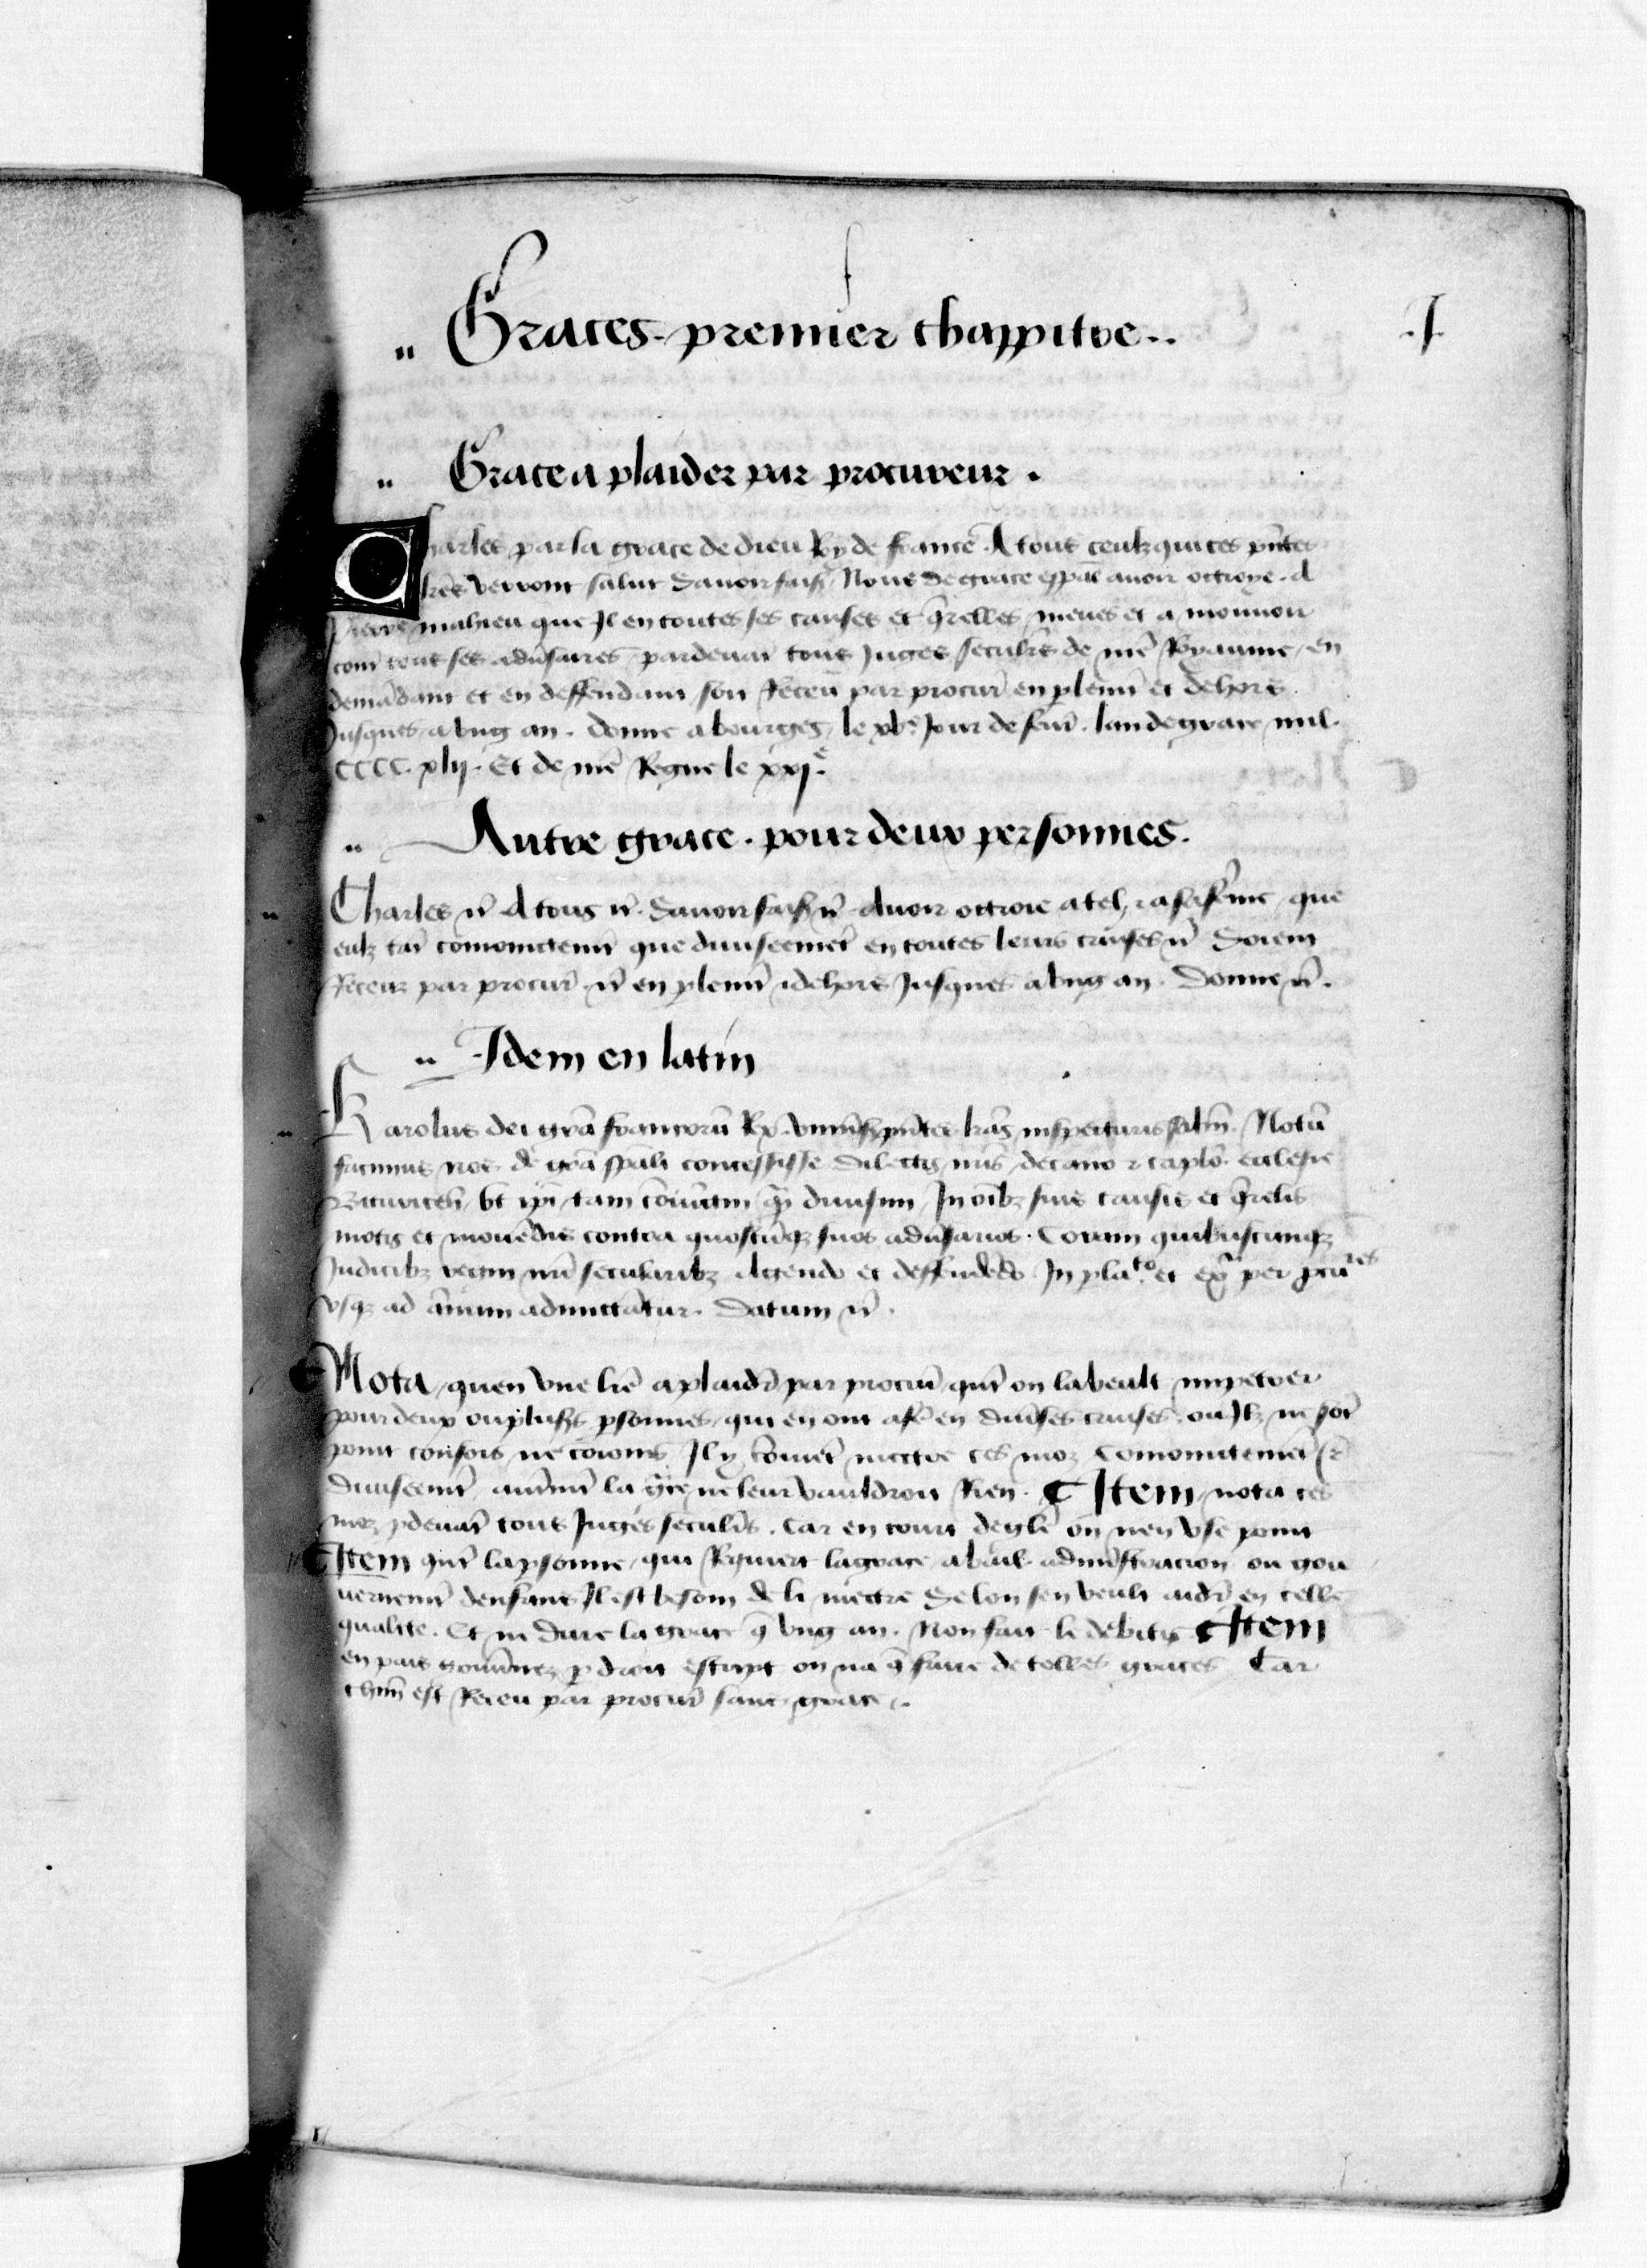 Graces. premier chappitre..
.I.
Grace a plaider par procureur.
Charles par la grace de dieu Roy de france. A tous ceulx qui ces pñtes
lrẽs verront salut Savoir fais. Nous de grace espãl avoir ottroye. A
Pierre mahieu que Il en toutes ses causes et q̃relles meues et a mouvoir
cont̃ tous ses advs̃aires pardevant̃ tous Juges secul̃rs de nrẽ Royaume, en
demãdant et en deffendant soit Receũ par procur̃ en plemt̃ et dehors
Jusques a ung an. Donne a bourges, le xvᵉ Jour de fevr̃. lan de grace mil.
CCCC. xlij. Et de nrẽ Regne le xxjᵉ.
Autre grace. pour deux personnes.
Charles ꝛc̃ A tous ꝛc̃. Savoir fais ꝛc̃. Avoir ottroie a tel, ⁊ a sa fem̃e, que
eulx tañ comoinctemt̃ que diviseemet̃ en toutes leurs causes ꝛc̃ Soient
Receuz par procur̃ ꝛc̃ en plemt̃ ⁊ dehors Jusques a ung an. Donne ꝛc̃.
Idem en latin
Karolus dei grã francorũ Rex. univs̃is pñtes lrãs inspecturis saltm̃. Notũ
facimus nos de grã spãli concessisse dilectis nrĩs decano ⁊ caplõ ecclesie
Bituriceñ. ut ipĩ tam cõiũctim q̃ divisim, In oĩbꝫ suis causis et q̃relis
motis et movẽdis contra quoscũqꝫ suos advs̃arios. Coram quibuscunqꝫ
Judicibꝫ regni nrĩ secularibꝫ Agendo et deffendẽdo. In plaᵗᵒ et ex̃ᵃ per pcũʳᵉˢ
usqꝫ ad ãnum admittãtur. Datum ꝛc̃.
Nota quen une lrẽ a plaidr̃ par procur̃ qñt on la veult impetrer
pour deux ou plus̃rs psonnes, qui en ont afẽ en divs̃es causes. ou Ilz ne sõt
point consors ne cõioins Il y cõviẽt mettre ces moz Comoinctemẽt ⁊
diviseemt̃, autremt̃ la gr̃ce ne leur vauldroit Rien. Item, nota ces
moz pdevãt tous Juges secul̃rs. Car en court degli̇̃ on nen use point
Item qñt la psonne, qui Requiert la grace a bail adminĩstracion ou gou
vernemt̃ denfans Il est besoin de li mectre Se lon sen veult aidr̃ en celle
qualite. Et ne dure la grace q̃ ung an. Non fait le debitis Item
en pais goũvnez p droit escript on na q̃ faire de telles graces Car
chũn est Receu par procur̃ sans grace.